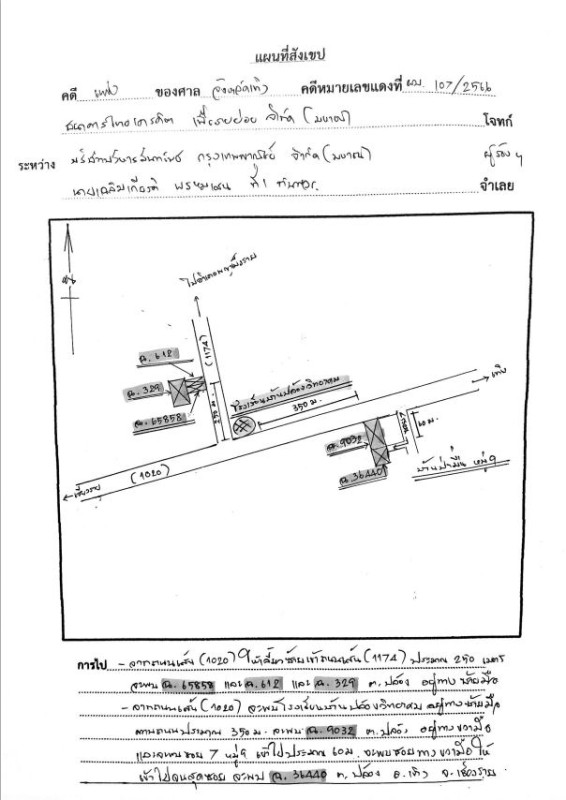 แผนที่สังเขป
คดี แพ่ง ของศาล จังหวัดเทิง คดีหมายเลขแดงที่ ผบ. 107/2566
ธนาคารไทยเครดิต เพื่อรายย่อย จำกัด (มหาชน) โจทก์
ระหว่าง บริษัทบริหารสินทรัพย์ กรุงเทพพาณิชย์ จำกัด (มหาชน) ผู้ร้อง
นายเฉลิมเกียรติ ที่ 1 จำเลย
น
ไปอำเภอพญาเม็งราย
(1174)
ฉ. 612
ฉ. 329
ฉ. 65858
250 ม.
โรงเรียนบ้านปล้องวิทยาคม
350 ม.
เทิง
ซอย 7
60 ม.
ฉ. 9032
ฉ. 36440
หมู่ 9
(1020)
เชียงราย
การไป - จากถนนเส้น (1020) ให้เลี้ยวซ้ายเข้าถนนเส้น (1174) ประมาณ 250 เมตร
จะพบ ฉ. 65858 และ ฉ. 612 และ ฉ. 329 ต. ปล้อง อยู่ทางซ้ายมือ
- จากถนนเส้น (1020) จะพบโรงเรียนบ้านปล้องวิทยาคม อยู่ทางซ้ายมือ
ตามถนนประมาณ 350 ม. จะพบ ฉ. 9032 ต. ปล้อง อยู่ทางขวามือ
และจะพบซอย 7 หมู่ 9 เข้าไปประมาณ 60 ม. จะพบซอยทางขวามือ ให้
เข้าไปจนสุดซอย จะพบ ฉ. 36440 ต. ปล้อง อ. เทิง จ. เชียงราย